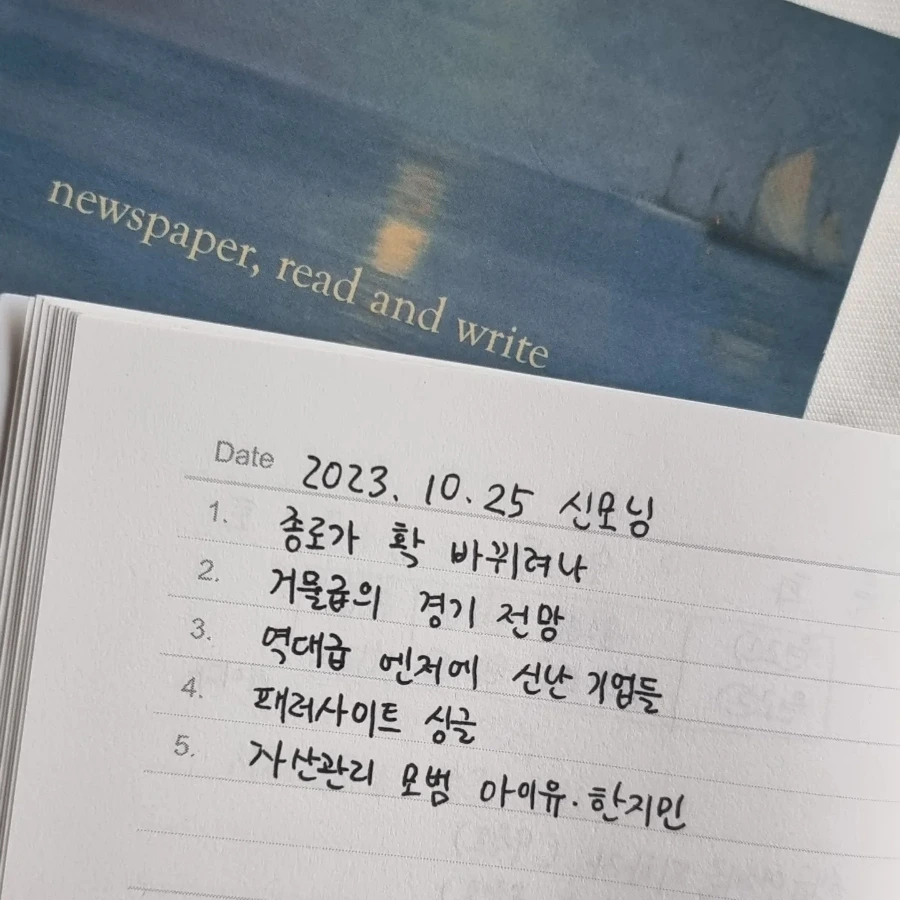 newspaper, read and write
Date 2023. 10. 25 신모닝
1. 종로가 확 바뀌려나
2. 거물급의 경기 전망
3. 역대급 엔저에 신난 기업들
4. 패러사이트 싱글
5. 자산관리 모범 아이유·한지민